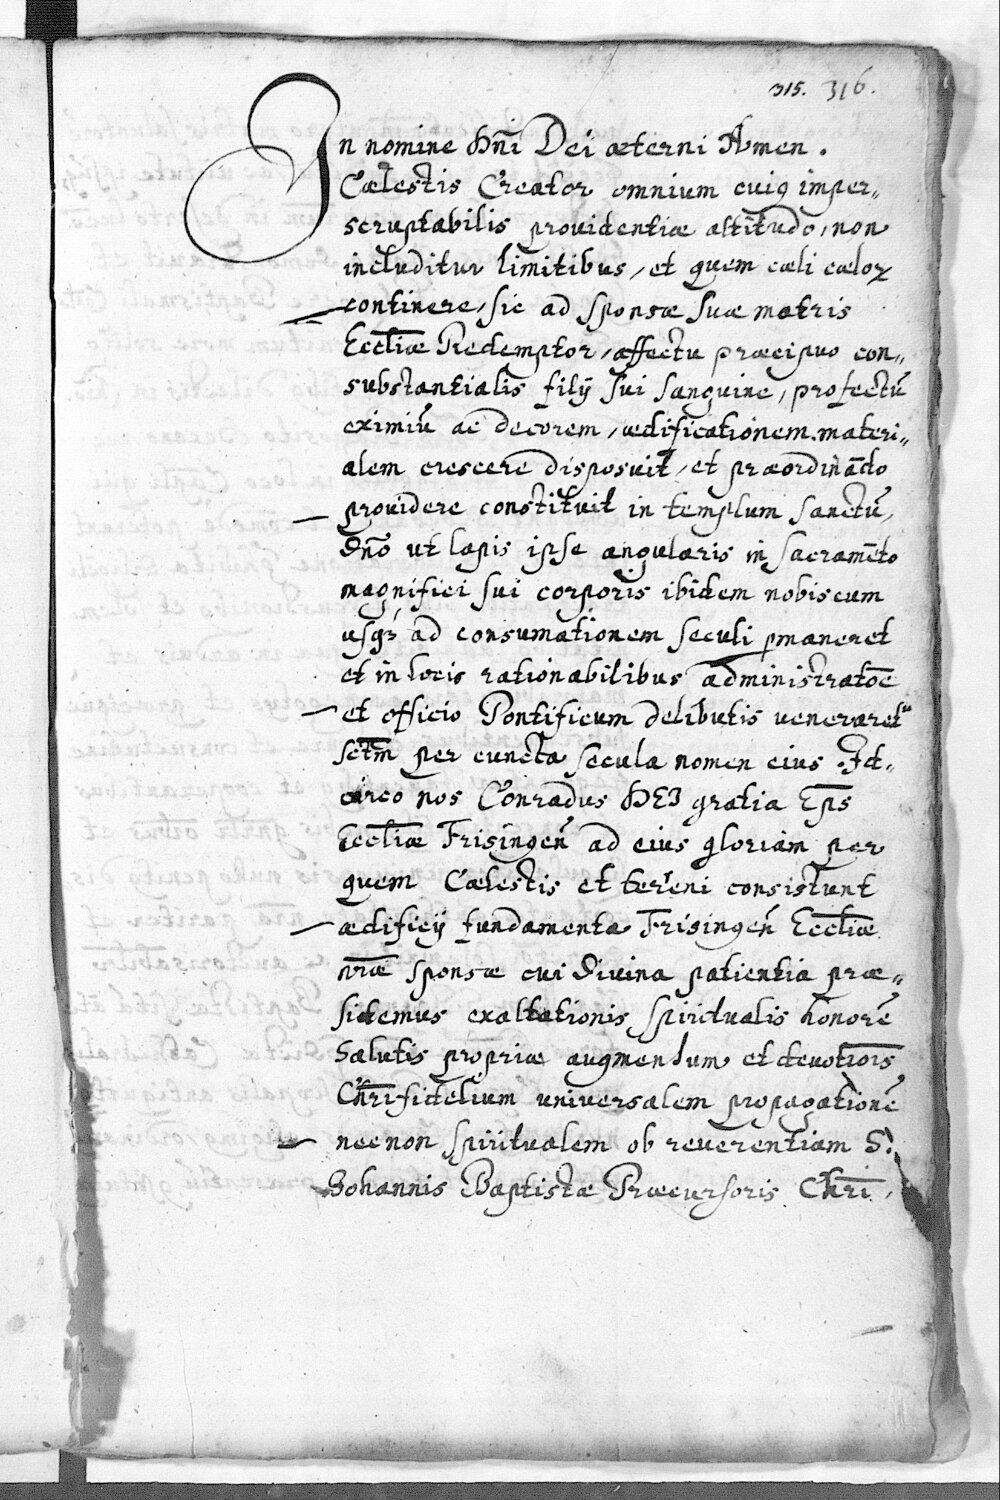 315. 316.
In nomine Dn̄i Dei æterni Amen.
Cælestis Creator omnium cuiq imper„
scruptabilis prouidentiæ altitudo, non
includitur limitibus, et quem cæli cæloꝝ
continere, sic ad sponsæ suæ matris
Eccl̄iæ Redemptor, affectu præcipuo con„
substantialis filÿ sui sanguine, profectū
eximiū ac decorem, ædificationem materi„
alem crescere disposuit, et præordinādo
prouidere constituit in templum sanctū,
Dn̄o ut lapis ipse angularis in sacramēto
magnifici sui corporis ibidem nobiscum
usq3 ad consumationem seculi ꝑmaneret
et in locis rationabilibus administratōe
et officio Pontificum delibutis veneraret᷑
sct̄m per cuncta secula nomen eius. Id„
circo nos Conradus DEI gratia Ep̄s
Eccl̄iæ Frisingen̄ ad eius gloriam per
quem Cælestis et terreni consistunt
ædificÿ fundamenta Frisingen̄ Eccl̄iæ
nr̄æ sponsæ cui divina patientia præ„
sidemus exaltationis spiritualis honorē
Salutis propriæ augmendum et devotiōis
Chr̄ifidelium universalem propagationē
necnon spiritualem ob reverentiam S.
Johannis Baptistæ Præcursoris Chr̄i,